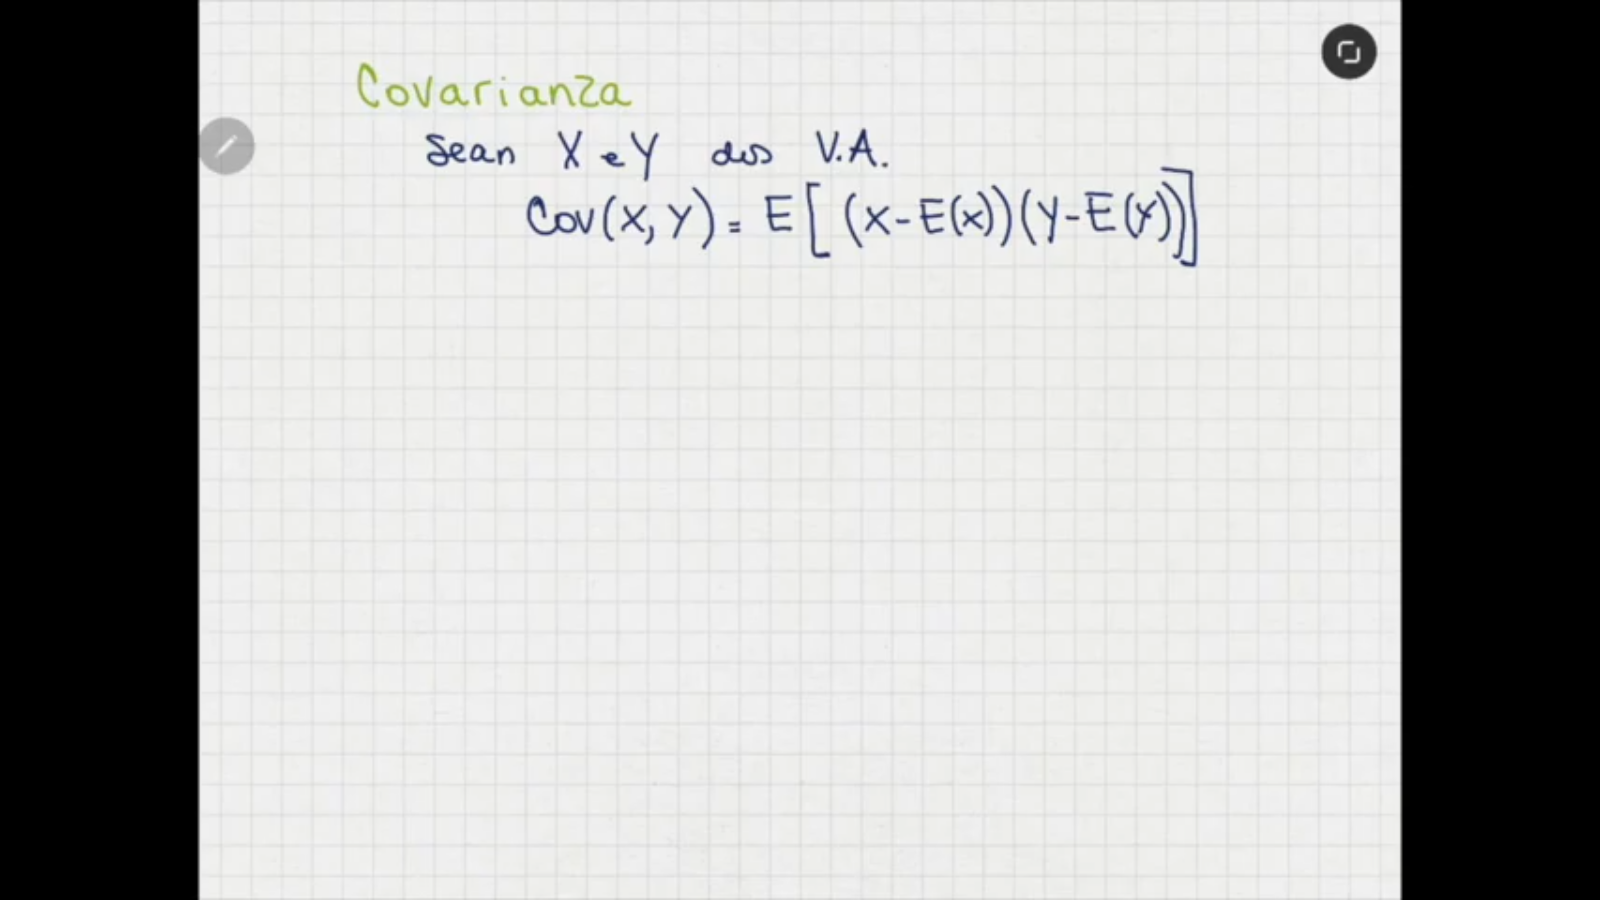 Covarianza
Sean X e Y dos V.A.
Cov(X, Y) = E[(X-E(x))(Y-E(Y))]